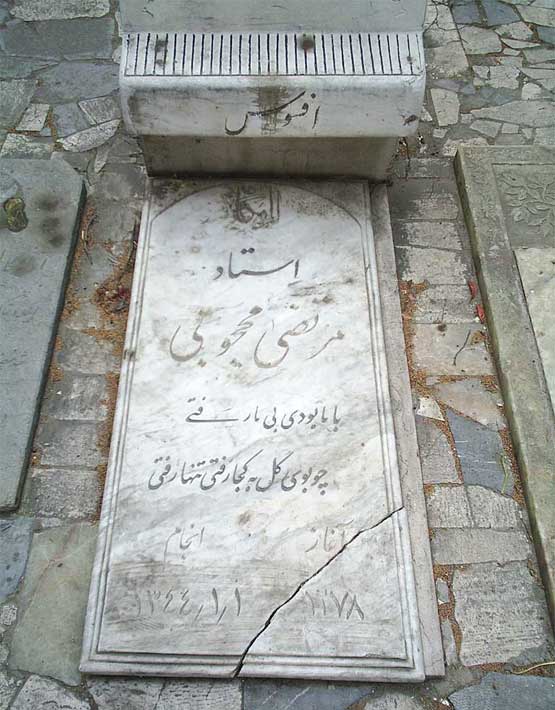 افسوس
استاد
مرتضی محجوبی
با ما بودی بی ما رفتی
چو بوی گل به کجا رفتی تنها رفتی
آغاز انجام
۱۲۷۸ ۱۳۴۴/۱/۱